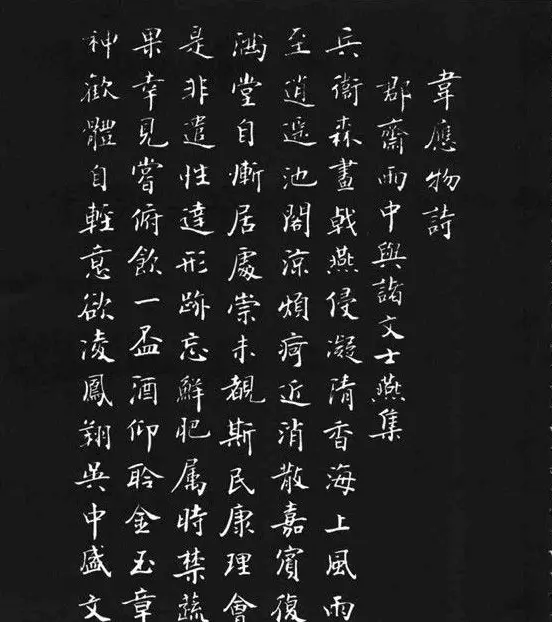 韋應物詩
郡齋雨中與諸文士燕集
兵衛森畫戟燕侵凝清香海上風雨
至逍遥池閣涼煩疴近消散嘉賓復
滿堂自慚居處崇未覩斯民康理會
是非遣性達形跡忘鮮肥属時禁蔬
果幸見嘗俯飲一盃酒仰聆金玉章
神歡體自輕意欲凌鳳翔吳中盛文